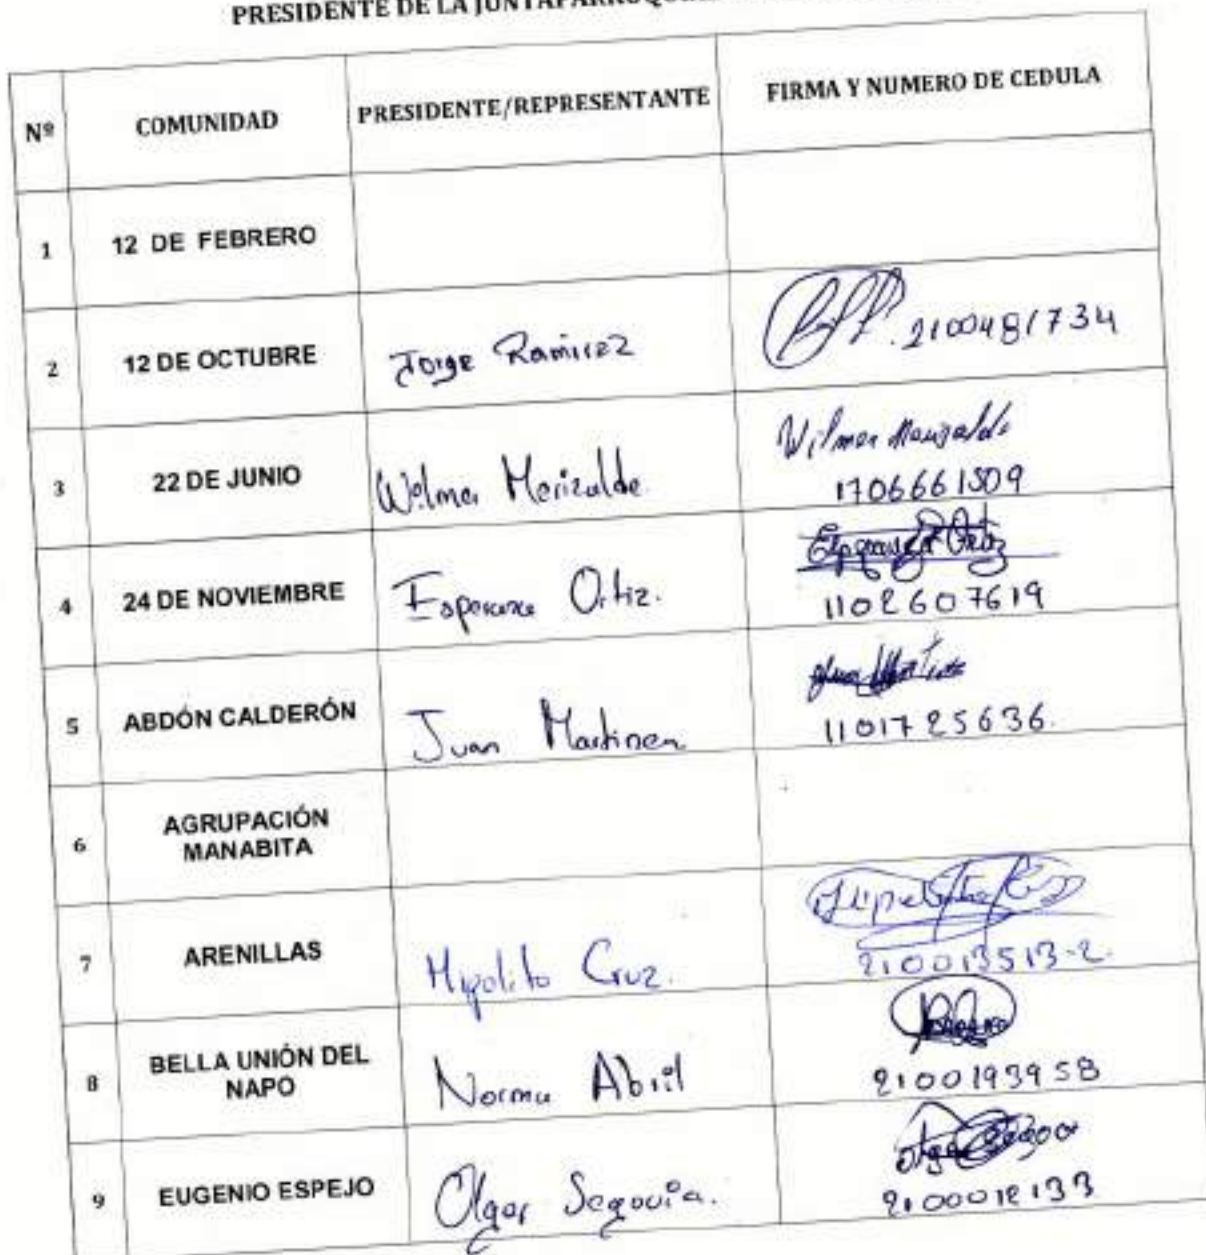 PRESIDENTE DE LA JUNTA
Nº COMUNIDAD PRESIDENTE/REPRESENTANTE FIRMA Y NUMERO DE CEDULA
1 12 DE FEBRERO
2 12 DE OCTUBRE Jorge Ramirez 2100481734
3 22 DE JUNIO Wilmer Merizalde Wilmer Merizalde
1706661509
4 24 DE NOVIEMBRE Esperanza Ortiz. Esperanza Ortiz
1102607619
5 ABDÓN CALDERÓN Juan Martinez Juan Martinez
1101725636.
6 AGRUPACIÓN
MANABITA
7 ARENILLAS Hipolito Cruz.
210013513-2.
8 BELLA UNIÓN DEL
NAPO Norma Abril
2100193958
9 EUGENIO ESPEJO Olger Segovia.
2100012133